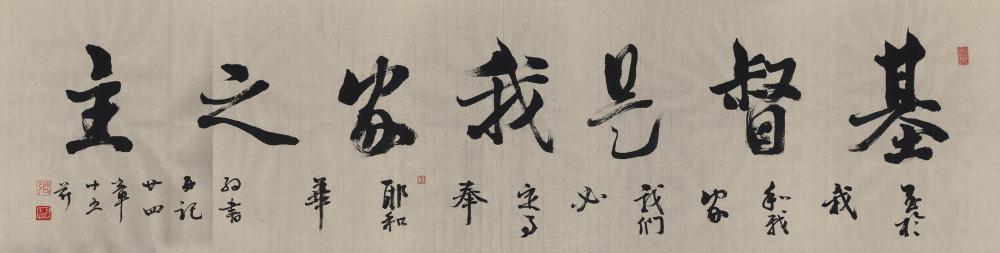 基督是我家之主
至於我和我家我們必定事奉耶和華
約書亞記廿四章十五節